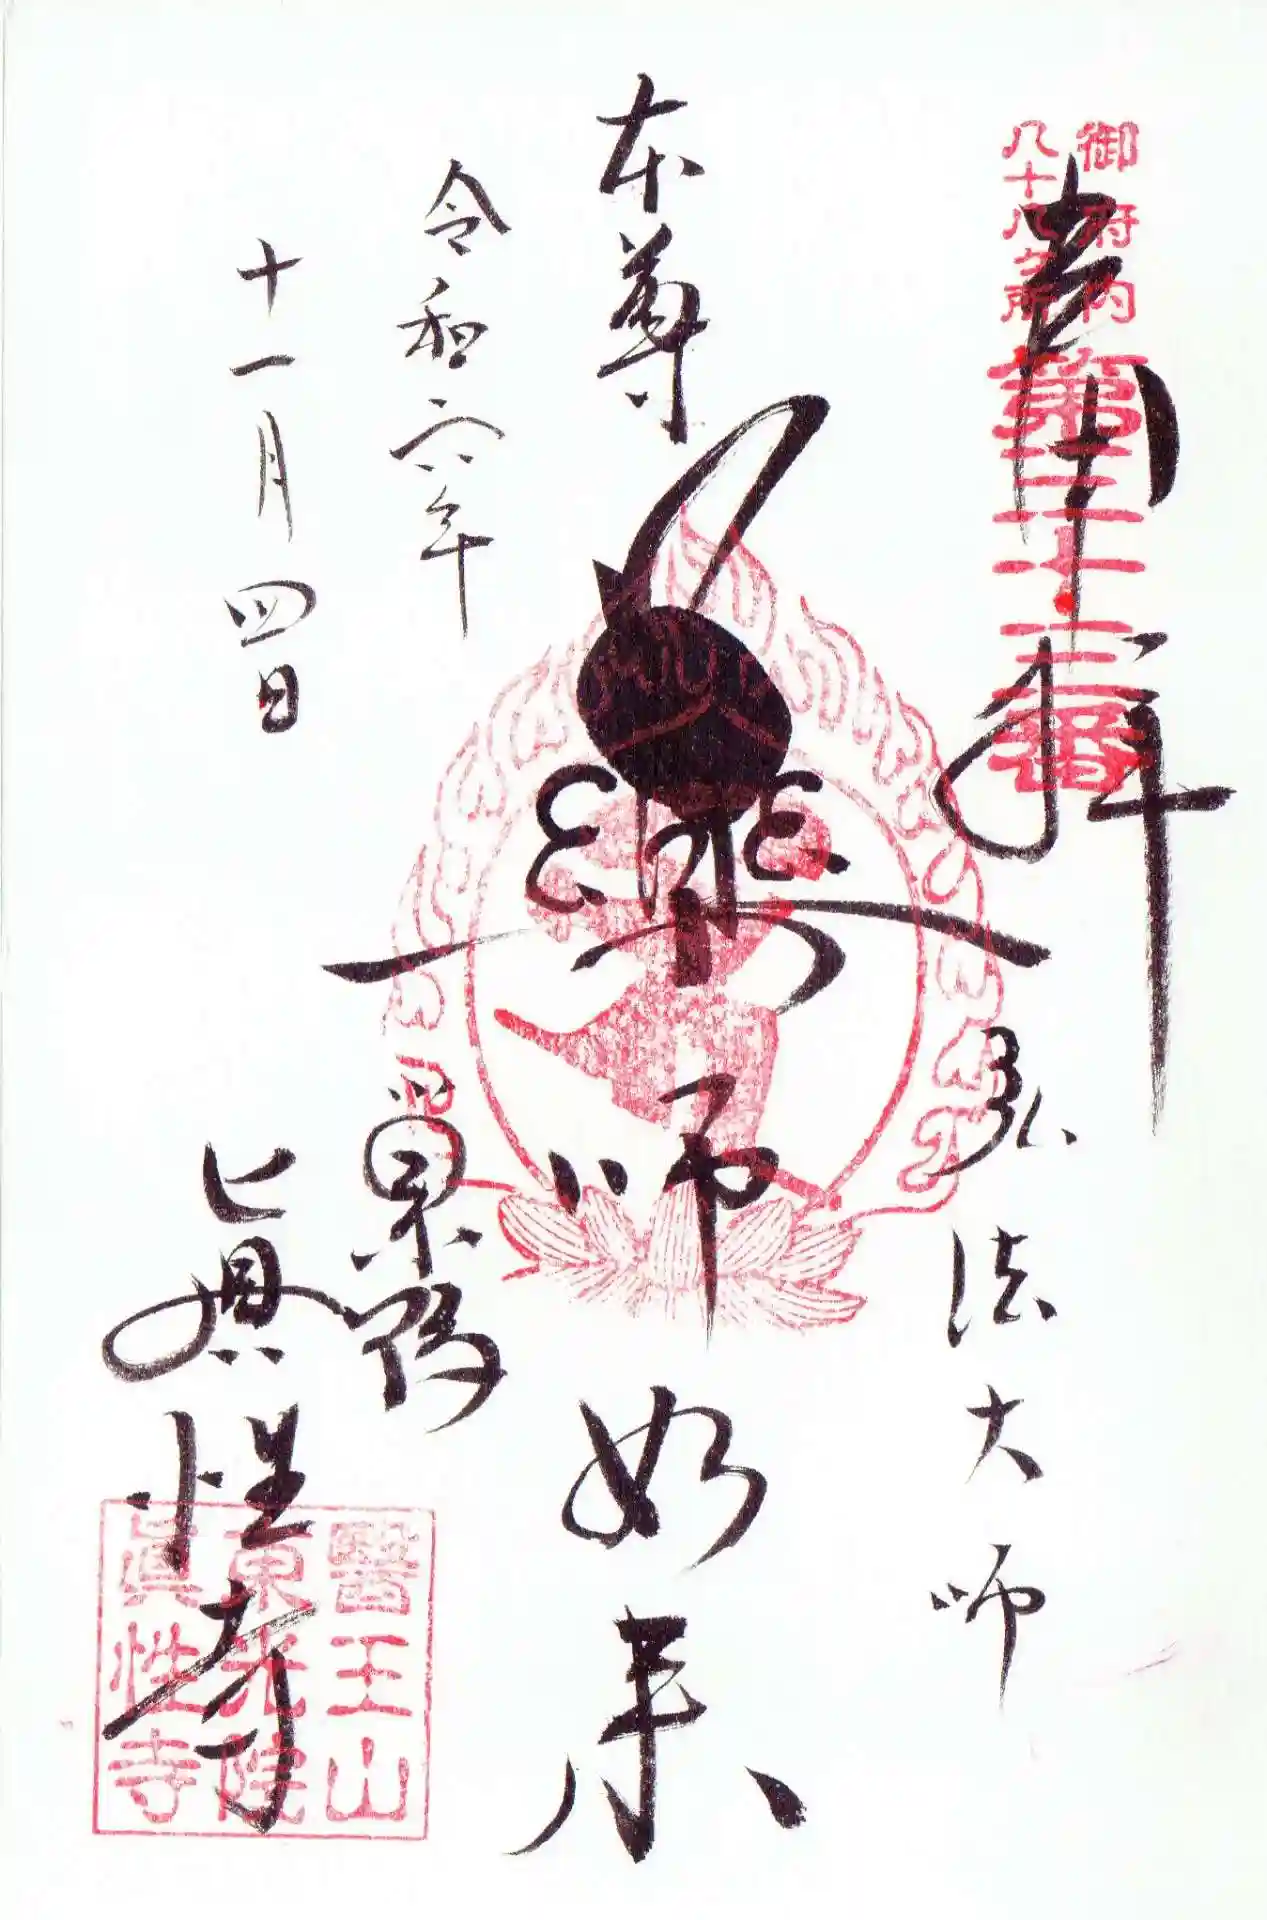 御府内
八十八ケ所
第三十三番
奉拝
弘法大師
本尊
藥師如来
令和六年
十一月四日
巣鴨
眞性寺
醫王山
東光院
眞性寺